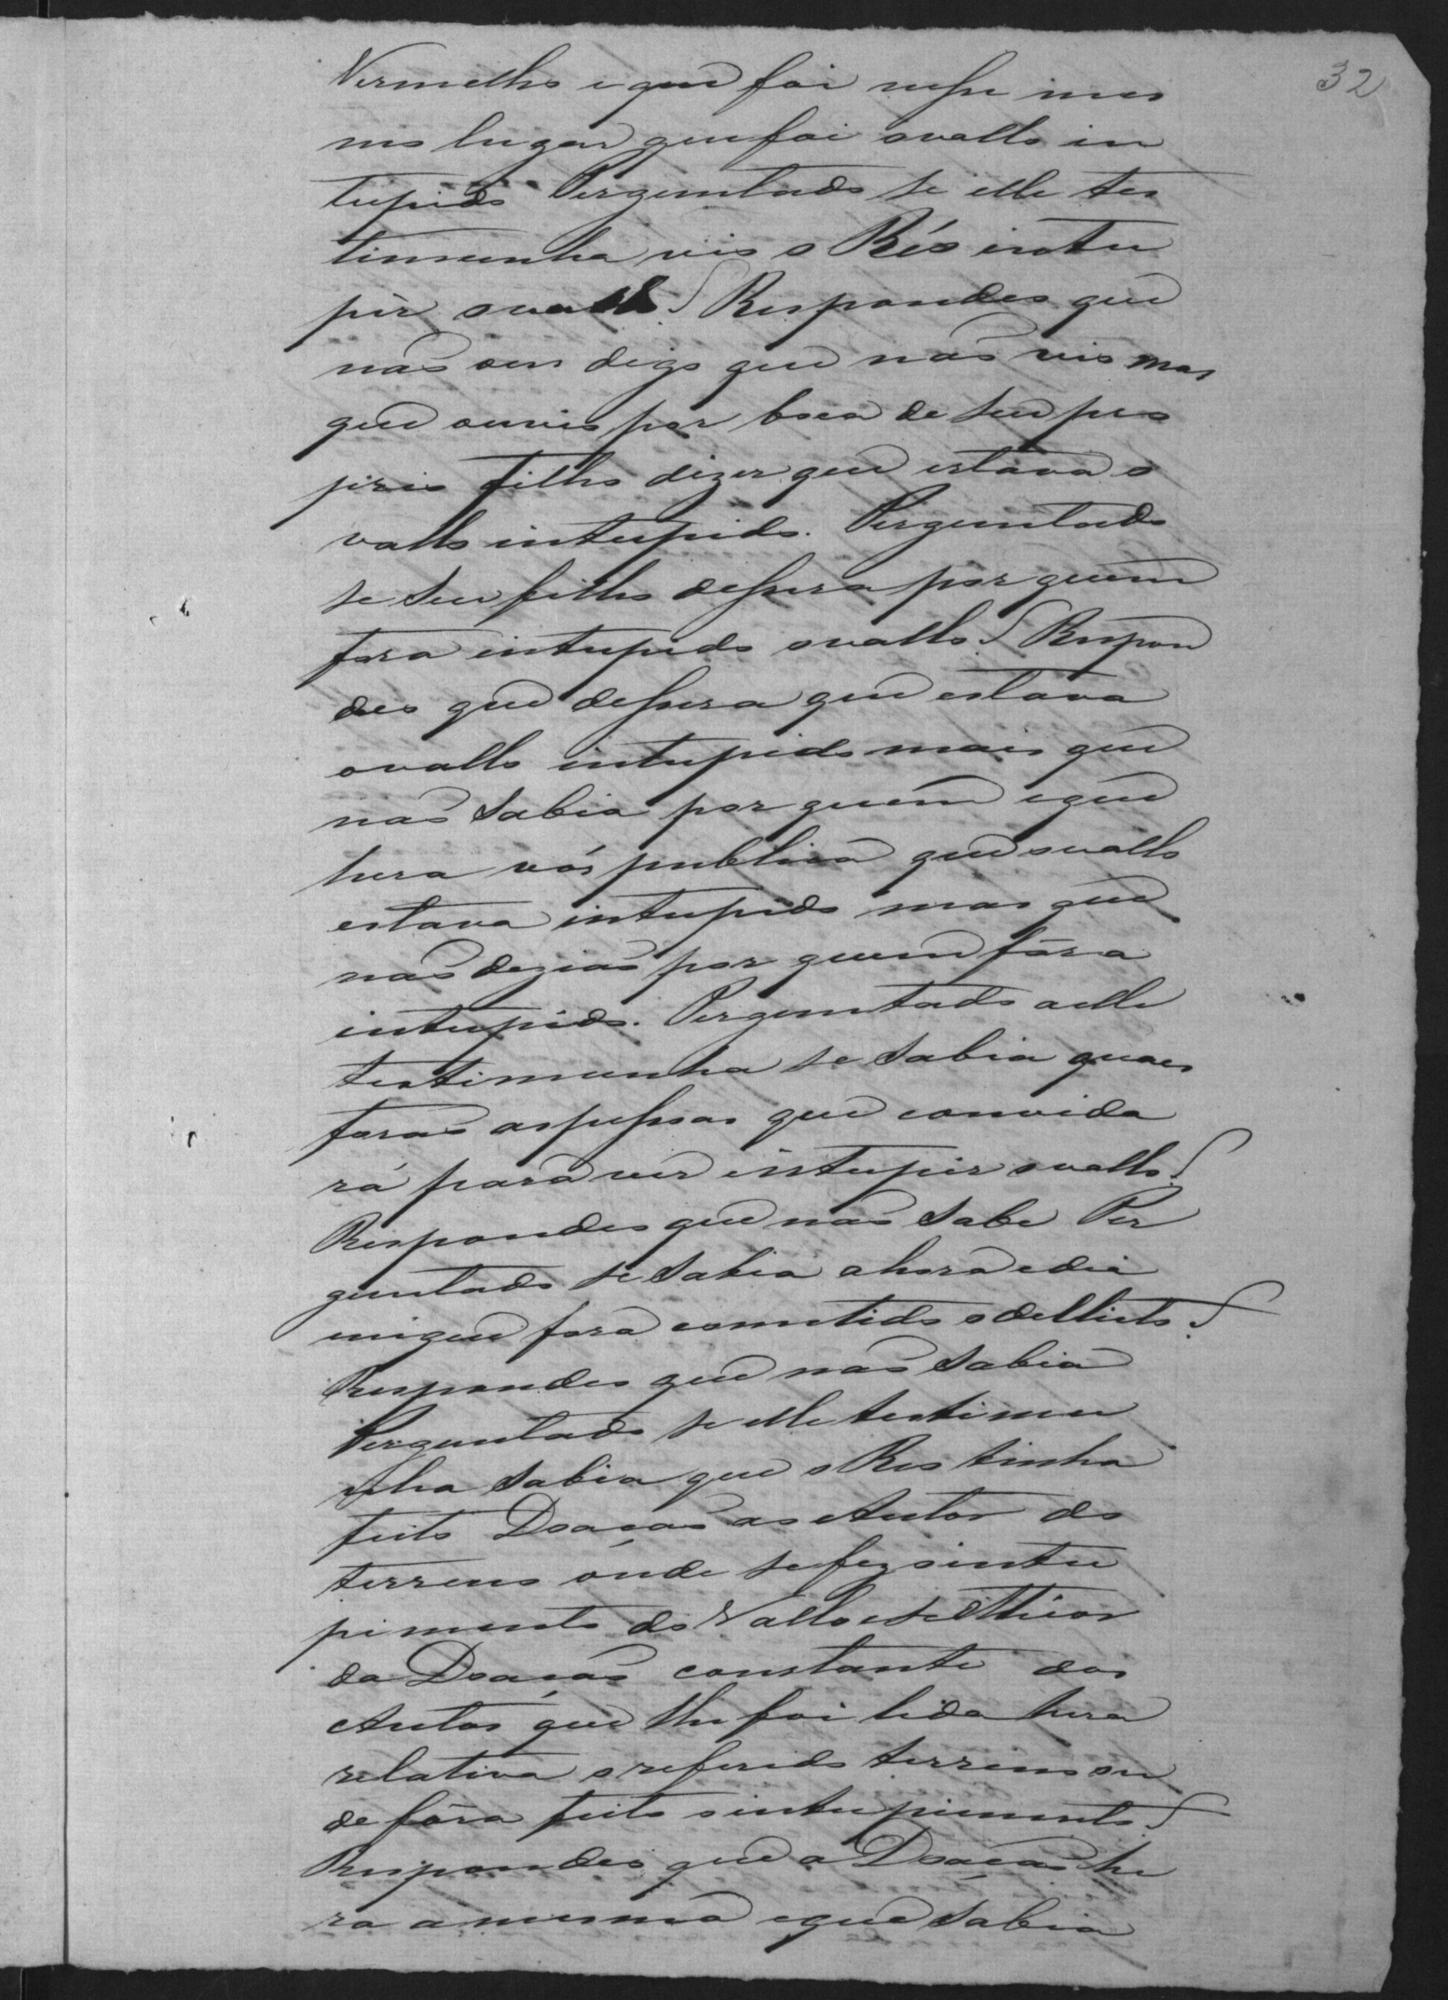 32
Vermelho e que foi nesse mes
mo lugar que foi ovallo in
tupido Perguntado se elle tes
timunha vio o Réo intu
pir ovallo? Respondeo que
não ou digo que não vio mas
que ouvio por boca de seu pro
prio filho dizer que estava o
vallo intupido. Perguntado
se seu filho dessera por quem
fora intupido ovallo? Respon
deo que dessera que estava
ovallo intupido mais que
não sabia por quem e que
hera vós publica que ovallo
estava intupido mas que
não dezião por quem fôra
intupido. Perguntado aelle
testimunha se sabia quaes
forão aspessoas que convida
rá para ver intupir ovallo?
Respondeo que não sabe Per
guntado se sabia ahora edia
emque fora cometido odellicto?
Respondeo que não sabia
Perguntado se elle testimu
nha sabia que o Reo tinha
feito Doação ao Autor do
terreno onde se fez ointu
pimento do Vallo e se o Theor
da Doação constante dos
Autos que lhe foi lida hera
relativa o referido terreno on
de fôra feito ointupimento?
Respondeo que a Doação he
ra a mesma eque sabia